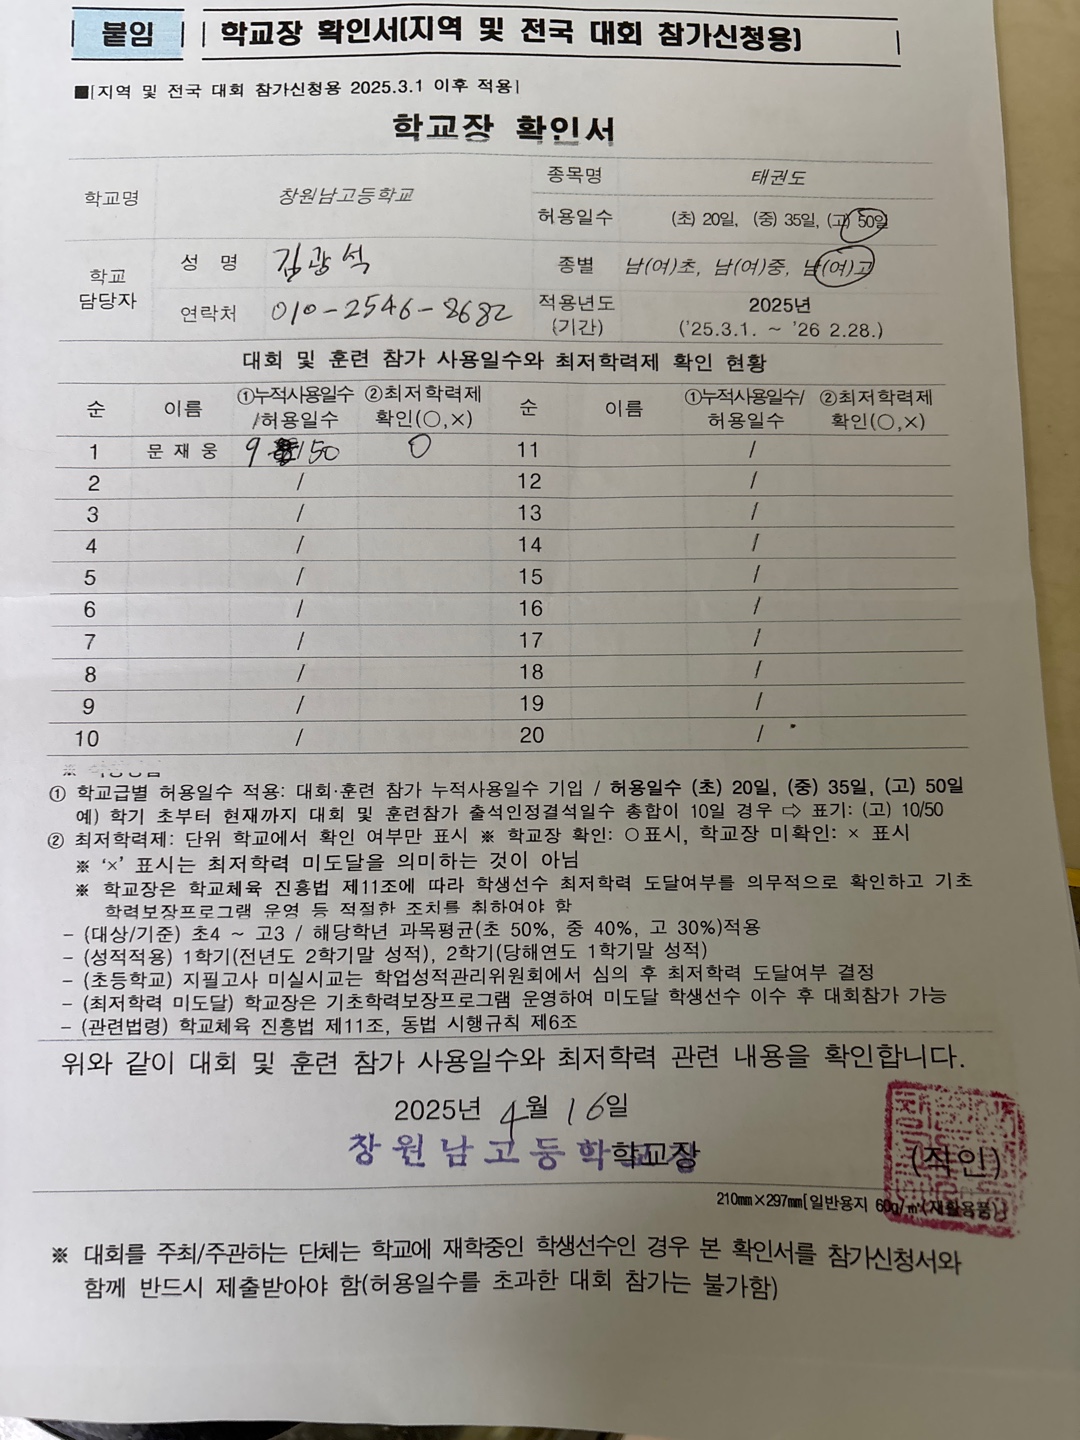 붙임 학교장 확인서(지역 및 전국 대회 참가신청용)
■[지역 및 전국 대회 참가신청용 2025.3.1 이후 적용]
학교장 확인서
학교명 창원남고등학교 종목명 태권도
허용일수 (초) 20일, (중) 35일, (고) 50일
학교 담당자 성 명 김광석 종별 남(여)초, 남(여)중, 남(여)고
연락처 010-2546-8682 적용년도 (기간) 2025년
('25.3.1. ~ '26 2.28.)
대회 및 훈련 참가 사용일수와 최저학력제 확인 현황
순 이름 ①누적사용일수/허용일수 ②최저학력제 확인(○,×) 순 이름 ①누적사용일수/허용일수 ②최저학력제 확인(○,×)
1 문재웅 9 /50 O 11 /
2 / 12 /
3 / 13 /
4 / 14 /
5 / 15 /
6 / 16 /
7 / 17 /
8 / 18 /
9 / 19 /
10 / 20 /
※
① 학교급별 허용일수 적용: 대회·훈련 참가 누적사용일수 기입 / 허용일수 (초) 20일, (중) 35일, (고) 50일
예) 학기 초부터 현재까지 대회 및 훈련참가 출석인정결석일수 총합이 10일 경우 ⇨ 표기: (고) 10/50
② 최저학력제: 단위 학교에서 확인 여부만 표시 ※ 학교장 확인: ○표시, 학교장 미확인: × 표시
※ '×' 표시는 최저학력 미도달을 의미하는 것이 아님
※ 학교장은 학교체육 진흥법 제11조에 따라 학생선수 최저학력 도달여부를 의무적으로 확인하고 기초
학력보장프로그램 운영 등 적절한 조치를 취하여야 함
- (대상/기준) 초4 ~ 고3 / 해당학년 과목평균(초 50%, 중 40%, 고 30%)적용
- (성적적용) 1학기(전년도 2학기말 성적), 2학기(당해연도 1학기말 성적)
- (초등학교) 지필고사 미실시교는 학업성적관리위원회에서 심의 후 최저학력 도달여부 결정
- (최저학력 미도달) 학교장은 기초학력보장프로그램 운영하여 미도달 학생선수 이수 후 대회참가 가능
- (관련법령) 학교체육 진흥법 제11조, 동법 시행규칙 제6조
위와 같이 대회 및 훈련 참가 사용일수와 최저학력 관련 내용을 확인합니다.
2025년 4월 16일
창원남고등학교장 학교장 (직인)
210㎜×297㎜[일반용지 60g/㎡(재활용품)]
※ 대회를 주최/주관하는 단체는 학교에 재학중인 학생선수인 경우 본 확인서를 참가신청서와
함께 반드시 제출받아야 함(허용일수를 초과한 대회 참가는 불가함)